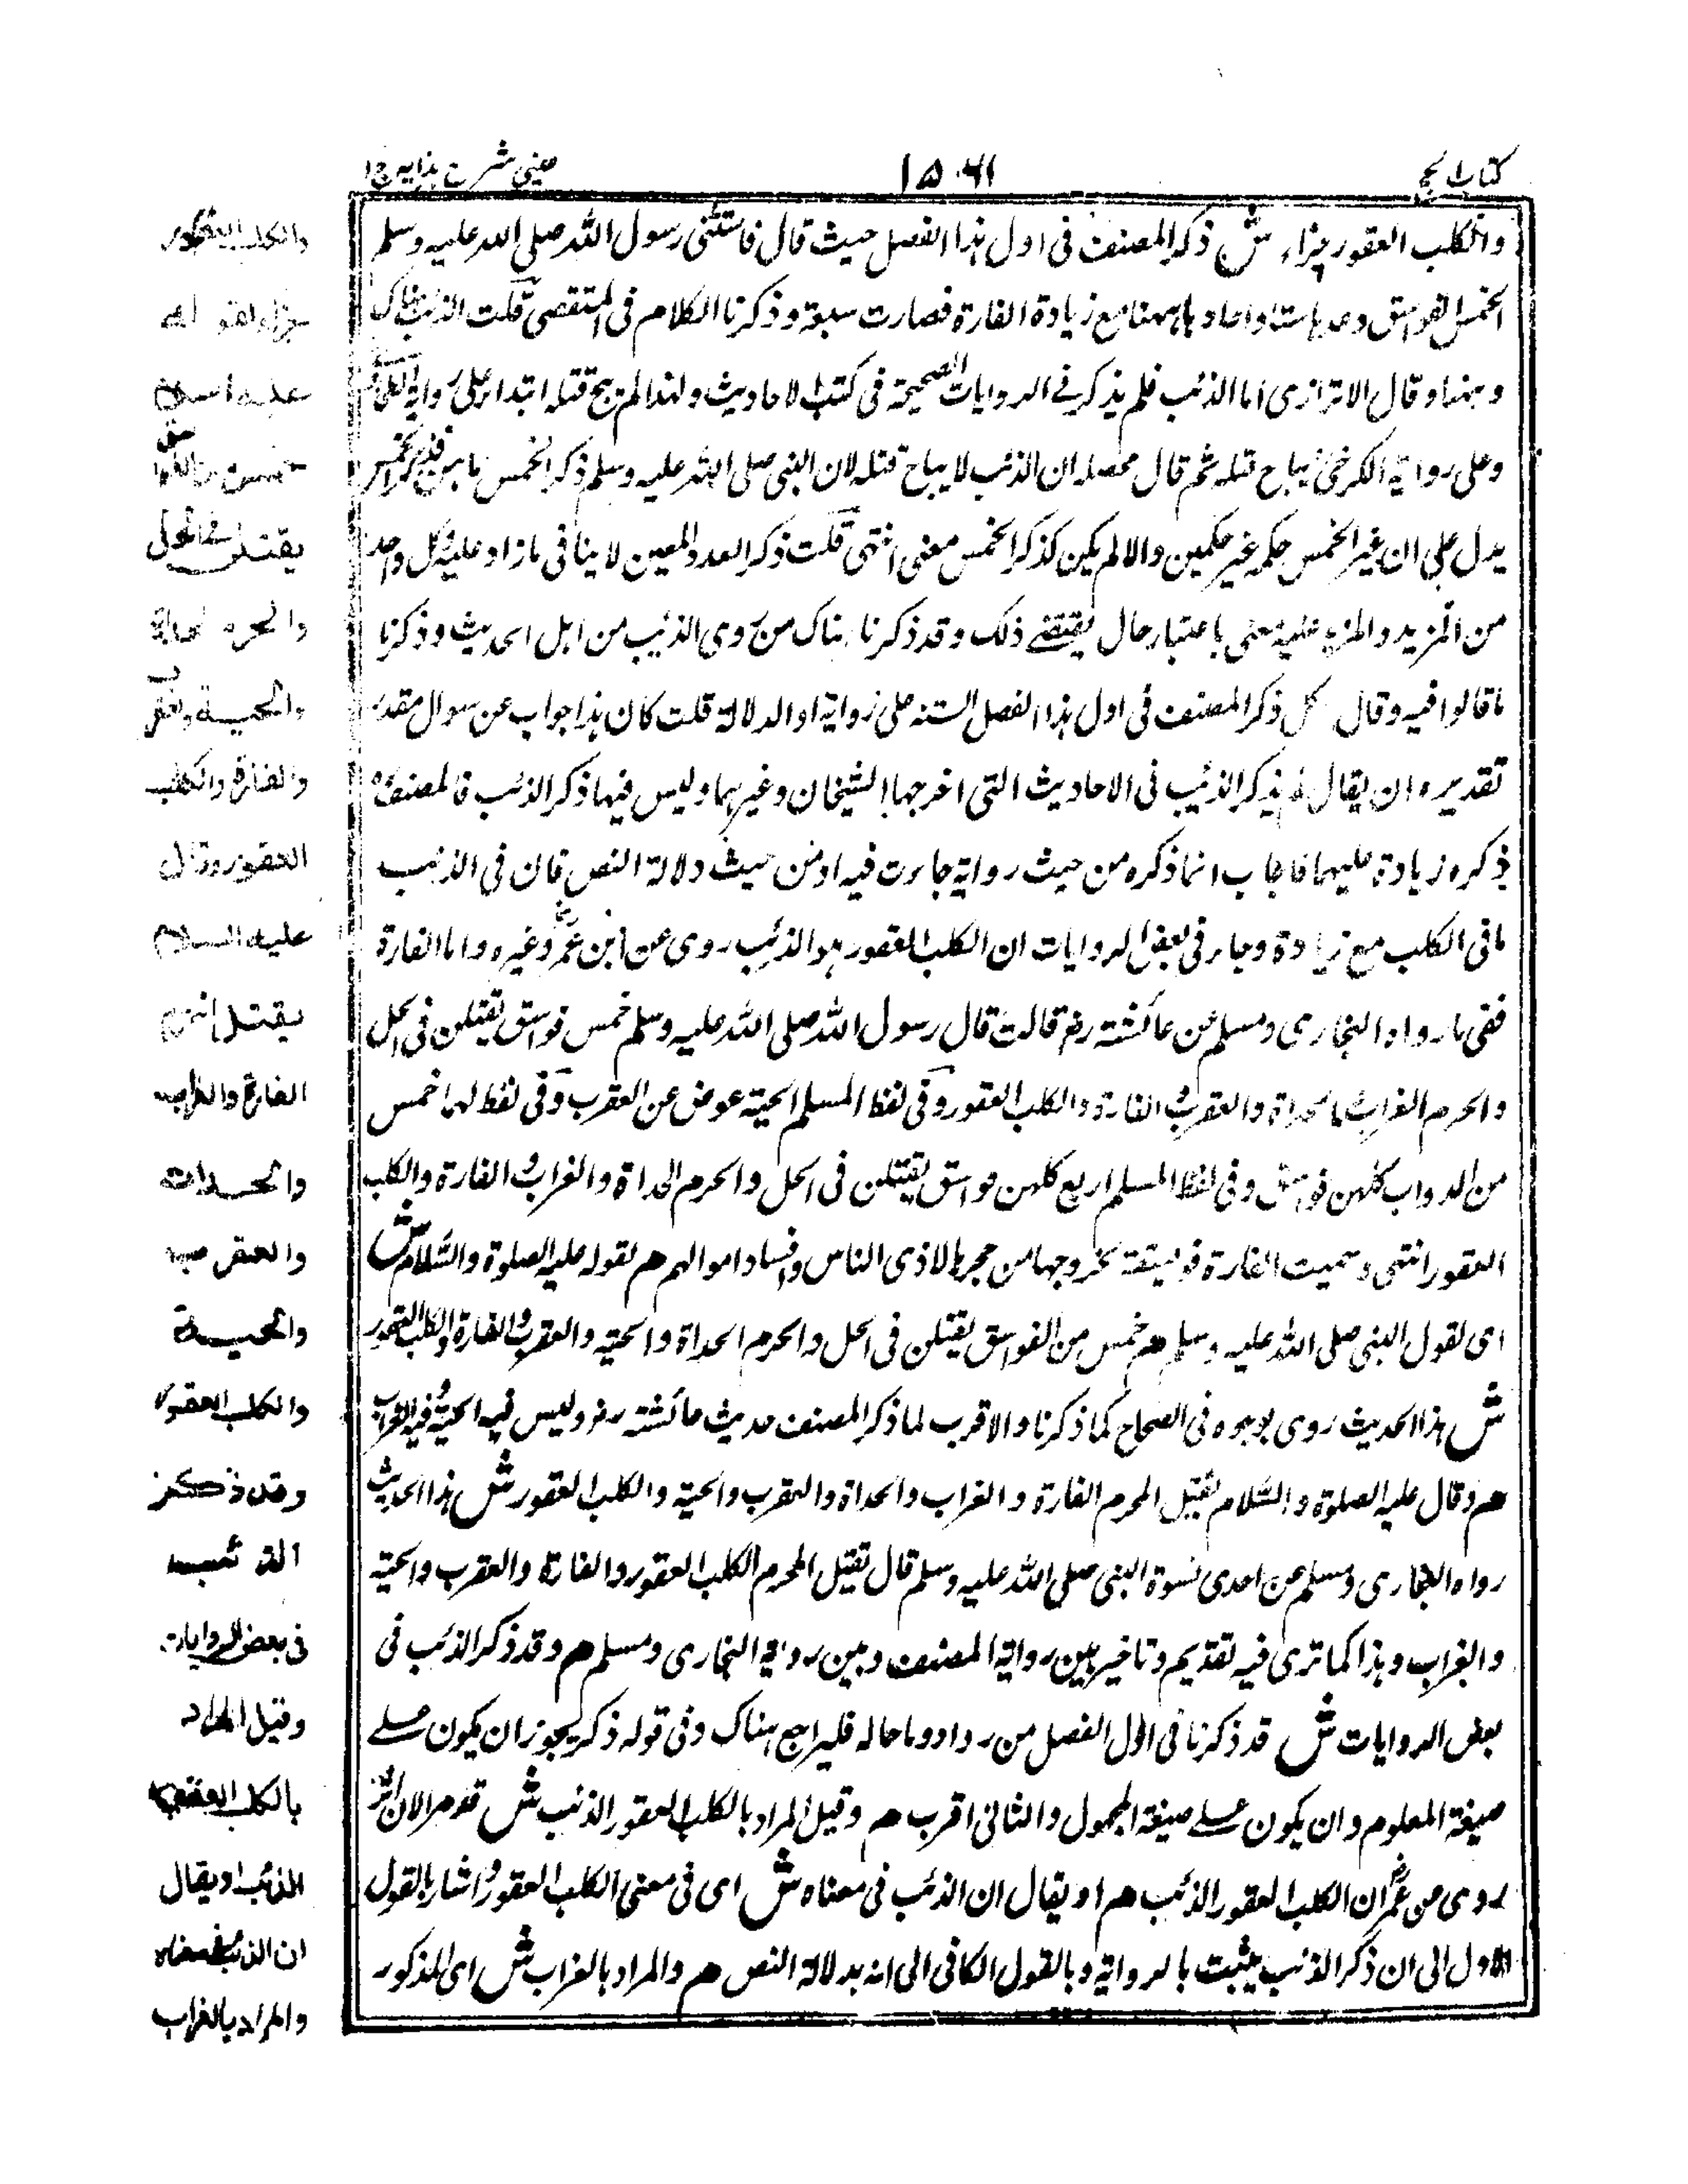 كتاب الحج
١٥٠٦١
عينى شرح هدايه ج ١
والكلب العقور جزاء ش ذكر المصنف فى اول هذا الفصل حيث قال فاستثنى رسول الله صلى الله عليه وسلم
الخمس الفواسق وعدها ستا واعادها ههنا مع زيادة الفارة فصارت سبعة وذكرنا الكلام فى المستقصى قلت الذئب هناك
وههنا وقال الاترازى اما الذئب فلم يذكر فى الروايات الصحيحة فى كتب الاحاديث ولهذا لم يبح قتله ابتداء على رواية
وعلى رواية الكرخى يباح قتله ثم قال محصله ان الذئب لا يباح قتله لان النبى صلى الله عليه وسلم ذكر الخمس
يدل على ان غير الخمس حكمه غير حكمهن والا لم يكن لذكر الخمس معنى انتهى قلت ذكر العدد المعين لا ينافى ما زاد عليه كل واحد
من المزيد والمزيد عليه معنى باعتبار حال يقتضى ذلك وقد ذكرنا هناك من روى الذئب من اهل الحديث وذكرنا
ما قالوا فيه وقال ذكر المصنف فى اول هذا الفصل الستة على رواية او الدلالة قلت كان هذا جواب عن سوال مقدر
تقديره ان يقال لم يذكر الذئب فى الاحاديث التى اخرجها الشيخان وغيرهما وليس فيها ذكر الذئب فالمصنف
ذكره زيادة عليهما فاجاب انما ذكره من حيث رواية جاءت فيه او من حيث دلالة النص فان فى الذئب
ما فى الكلب مع زيادة وجاء فى بعض الروايات ان الكلب العقور هو الذئب روى عن ابن عمر وغيره واما الفارة
ففى ما رواه البخارى ومسلم عن عائشة رض قالت قال رسول الله صلى الله عليه وسلم خمس فواسق يقتلن فى الحل
والحرم الغراب والحداة والعقرب والفارة والكلب العقور وفى لفظ المسلم الحية عوض عن العقرب وفى لفظ لهما خمس
من الدواب كلهن فواسق وفى لفظ المسلم اربع كلهن فواسق يقتلن فى الحل والحرم الحداة والغراب والفارة والكلب
العقور انتهى وسميت الفارة فويسقة لخروجها من جحرها لاذى الناس وافساد اموالهم هم لقوله عليه الصلوة والسلام ش
اى لقول النبى صلى الله عليه وسلم هم خمس من الفواسق يقتلن فى الحل والحرم الحداة والحية والعقرب والفارة والكلب العقور
ش هذا الحديث روى بوجوه فى الصحاح كما ذكرنا والاقرب لما ذكر المصنف حديث عائشة رض وليس فيه الحية وفيه الغراب
هم وقال عليه الصلوة والسلام يقتل المحرم الفارة والغراب والحداة والعقرب والحية والكلب العقور ش هذا الحديث
رواه البخارى ومسلم عن احدى نسوة النبى صلى الله عليه وسلم قال تقتل المحرم الكلب العقور والفارة والعقرب والحية
والغراب وهذا كما ترى فيه تقديم وتاخير بين رواية المصنف وبين رواية البخارى ومسلم هم وقد ذكر الذئب فى
بعض الروايات ش قد ذكرنا فى اول الفصل من رواه وما حاله فليراجع هناك وفى قوله ذكر يجوز ان يكون على
صيغة المعلوم وان يكون على صيغة المجهول والثانى اقرب هم وقيل المراد بالكلب العقور الذئب ش قد مر الان انه
روى عن عمر ان الكلب العقور الذئب هم او يقال ان الذئب فى معناه ش اى فى معنى الكلب العقور واشار بالقول
الاول الى ان ذكر الذئب يثبت بالرواية وبالقول الثانى الى انه بدلالة النص هم والمراد بالغراب ش اى المذكور
والكلب العقور
جزاء لقوله
عليه السلام
خمس من الفواسق
يقتلن فى الحل
والحرم الحداة
والحية والعقرب
والفارة والكلب
العقور وقال
عليه السلام
يقتل المحرم
الفارة والغراب
والحداة
والعقرب
والحية
والكلب العقور
وقد ذكر
الذئب
فى بعض الروايات
وقيل المراد
بالكلب العقور
الذئب او يقال
ان الذئب فى معناه
والمراد بالغراب